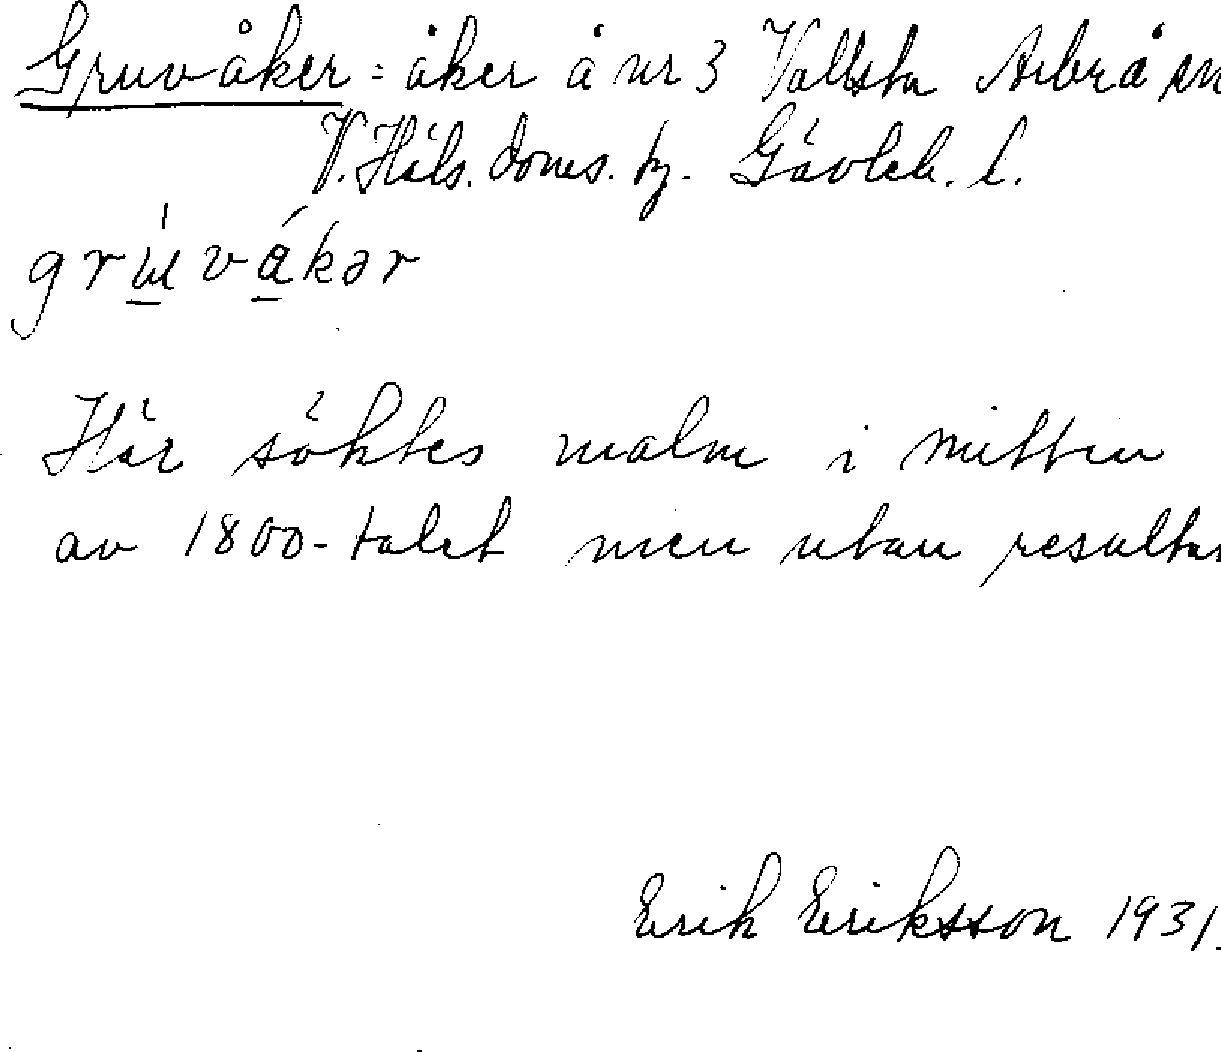 Gruvåker = åker å nr 3 Vallsta Arbrå sn
V. Häls. doms. hg. Gävleb. l.
Här söktes malm i mitten
av 1800-talet men utan resultat
Erik Eriksson 1931.